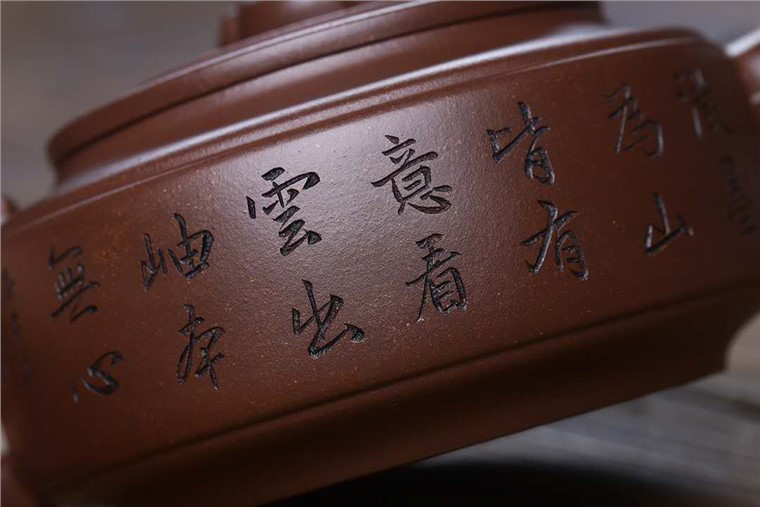 為山
皆有
意看
雲出
岫本
無心